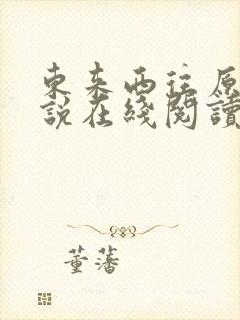 東来西往原
說在綫閱讀
董藩